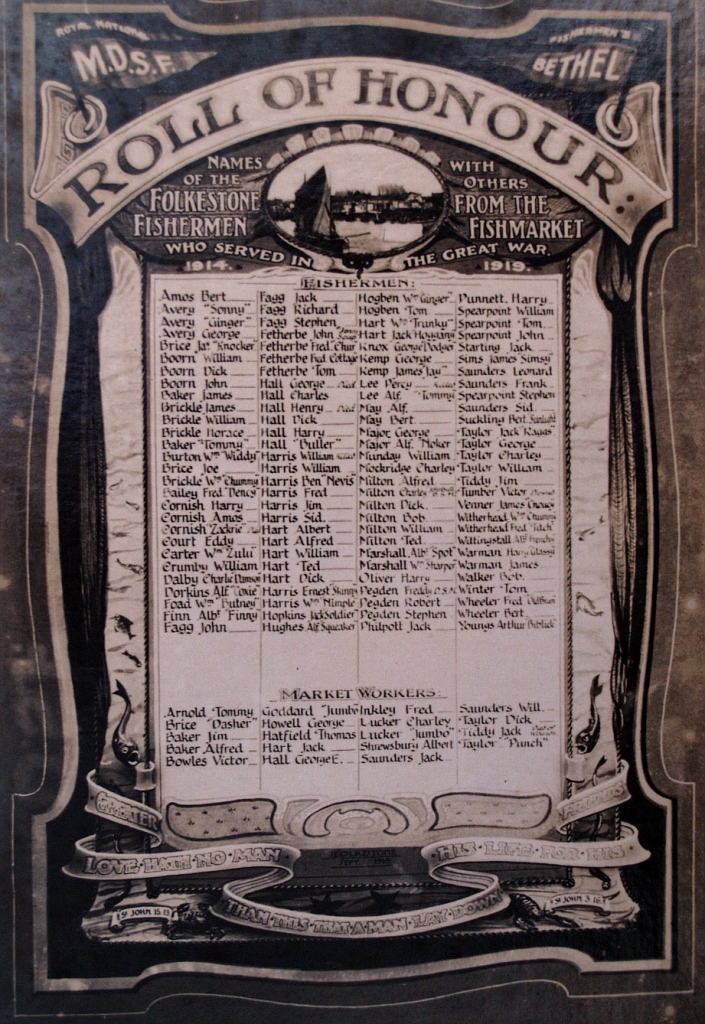 ROYAL NATIONAL
M.D.S.F.
FISHERMEN'S
BETHEL
ROLL OF HONOUR:
NAMES OF THE FOLKESTONE FISHERMEN
WITH OTHERS FROM THE FISHMARKET
WHO SERVED IN THE GREAT WAR.
1914. 1919.
FISHERMEN:
Amos Bert
Avery "Sonny"
Avery "Ginger"
Avery George
Brice Jas. "Knocker"
Boorn William
Boorn Dick
Boorn John
Baker James
Brickle James
Brickle William
Brickle Horace
Baker "Tommy"
Burton Wm "Widdy"
Brice Joe
Brickle Wm "Chummy"
Bailey Fred "Dency"
Cornish Harry
Cornish Amos
Cornish "Zackrie"
Court Eddy
Carter Wm "Zulu"
Crumby William
Dalby Charlie "Damson"
Dorkins Alf "Coxie"
Foad Wm "Putney"
Finn Albt "Finny"
Fagg John
Fagg Jack
Fagg Richard
Fagg Stephen
Fetherbe John
Fetherbe Fred "Chur"
Fetherbe Fred Cottage
Fetherbe Tom
Hall George
Hall Charles
Hall Henry
Hall Dick
Hall Harry
Hall "Buller"
Harris William
Harris William
Harris Ben "Nevis"
Harris Fred
Harris Jim
Harris Sid.
Hart Albert
Hart Alfred
Hart William
Hart Ted
Hart Dick
Harris Ernest Skinny
Harris Wm Nimple
Hopkins Jack Soldier
Hughes Alf Squeaker
Hogben Wm "Ginger"
Hogben Tom
Hart Wm "Trunky"
Hart Jack Hoggang
Knox George Dodger
Kemp George
Kemp James "Jay"
Lee Percy
Lee Alf. "Tommy"
May Alf.
May Bert
Major George
Major Alf. "Noker"
Munday William
Mockridge Charley
Milton Alfred
Milton Charley
Milton Dick
Milton Bob
Milton William
Milton Ted.
Marshall Albt "Spot"
Marshall Wm Sharper
Oliver Harry
Pegden Freddy D.S.M.
Pegden Robert
Pegden Stephen
Philpott Jack
Punnett. Harry
Spearpoint William
Spearpoint Tom
Spearpoint John
Starling Jack
Sims James "Simsy"
Saunders Leonard
Saunders Frank
Spearpoint Stephen
Saunders Sid.
Suckling Bert. Sunlight
Taylor Jack "Ragas"
Taylor George
Taylor Charley
Taylor William
Tiddy Jim
Tumber Victor
Venner James
Witherhead Wm Chummy
Witherhead Fred "Titch"
Wittingstall Alf
Warman Harry Glassy
Warman James
Walker Bob.
Winter Tom
Wheeler Fred
Wheeler Bert
Youngs Arthur
MARKET WORKERS:
Arnold Tommy
Brice "Dasher"
Baker Jim
Baker Alfred
Bowles Victor
Goddard "Jumbo"
Howell George
Hatfield Thomas
Hart Jack
Hall George E.
Inkley Fred
Lucker Charley
Lucker "Jumbo"
Shrewsbury Albert
Saunders Jack
Saunders Will.
Taylor Dick
Tiddy Jack
Taylor "Punch"
GREATER
LOVE HATH NO MAN
THAN THIS THAT A MAN LAY DOWN
HIS LIFE FOR HIS
FRIENDS
FOLKESTONE
ST JOHN 15.13
ST JOHN 3.16